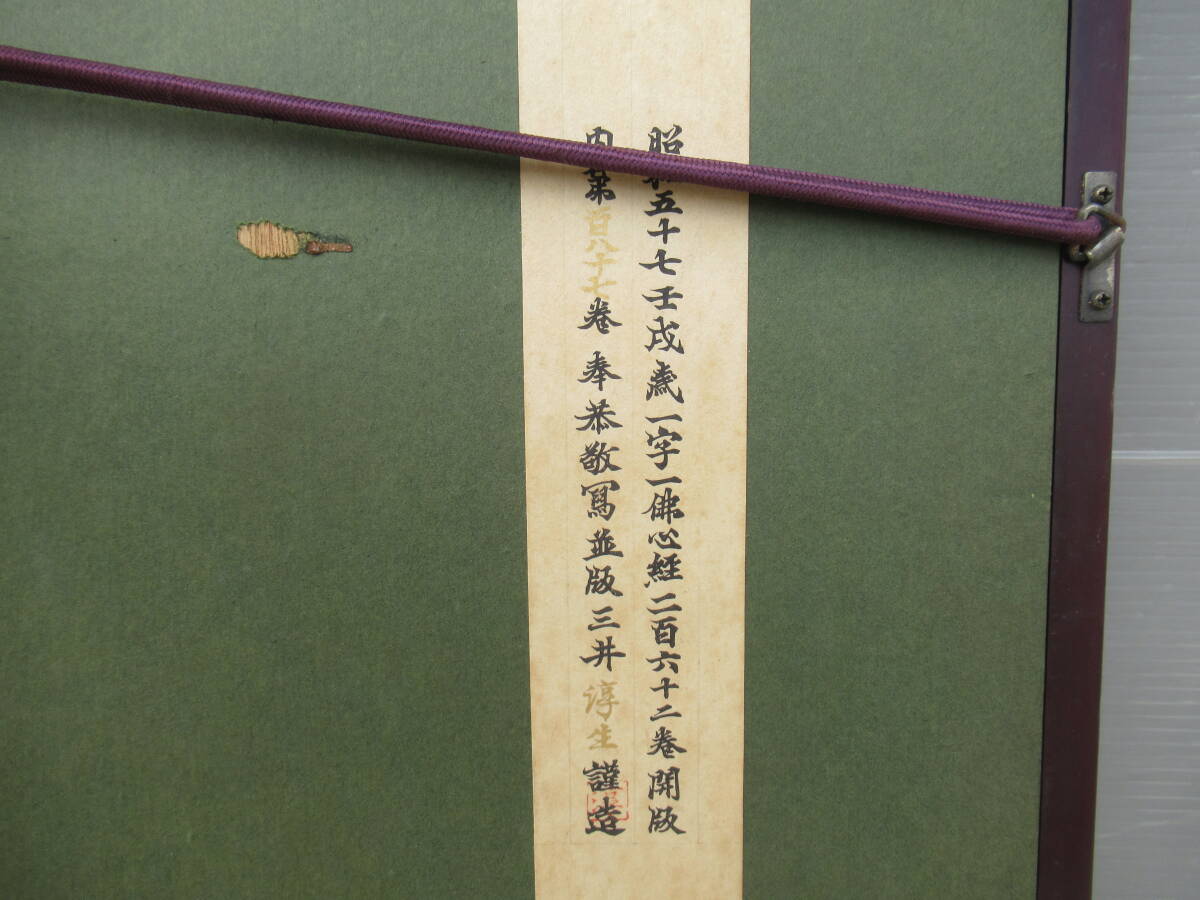 昭和五十七壬戌歳一字一佛心經二百六十二巻開版
内第百八十七巻 奉恭敬寫並版三井淳生謹造